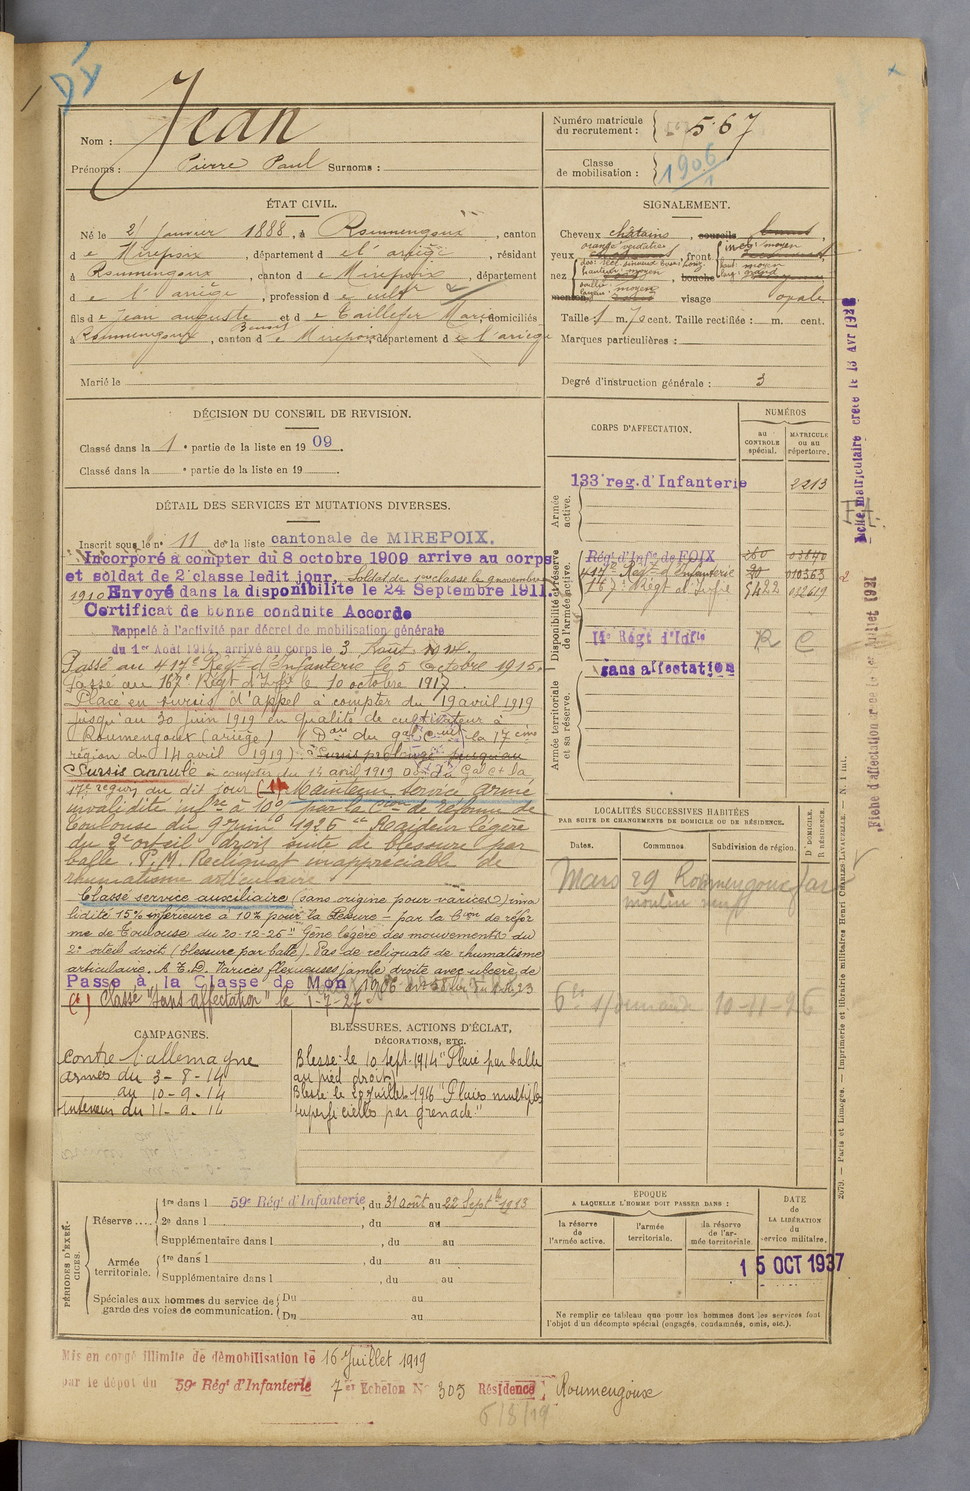 Nom : Jean
Prénoms : Pierre Paul Surnoms :
Numéro matricule
du recrutement : 567
Classe
de mobilisation : 1906/1
ÉTAT CIVIL.
Né le 2 janvier 1888, à Roumengoux, canton
de Mirepoix, département de l'ariège, résidant
à Roumengoux, canton de Mirepoix, département
de l'ariège, profession de cultr
fils de Jean auguste et de Taillefer Marie domiciliés
à Roumengoux, canton de Mirepoix, département de l'ariège
Marié le
SIGNALEMENT.
Cheveux châtains, sourcils
yeux orangé verdâtre, front incl: moyen
haut: moyen
larg: grand
nez dos: rect. sinueux base: horiz.
hauteur: moyen
saillie:
largeur: moyen
bouche
menton visage ovale
Taille : 1 m. 70 cent. Taille rectifiée : m. cent.
Marques particulières :
Degré d'instruction générale : 3
DÉCISION DU CONSEIL DE REVISION.
Classé dans la 1e partie de la liste en 1909.
Classé dans la e partie de la liste en 19
DÉTAIL DES SERVICES ET MUTATIONS DIVERSES.
Inscrit sous le n° 11 de la liste cantonale de MIREPOIX.
Incorporé à compter du 8 octobre 1909 arrive au corps
et soldat de 2e classe ledit jour. Soldat de 1ere classe le 9 novembre
1910 Envoyé dans la disponibilite le 24 Septembre 1911.
Certificat de bonne conduite Accorde
Rappelé à l'activité par décret de mobilisation générale
du 1er Août 1914, arrivé au corps le 3 Août 1914.
Passé au 414e Régt d'Infanterie le 5 Octobre 1915.
Passé au 167e Régt d'Infie le 10 octobre 1917.
Placé en sursis d'appel à compter du 19 avril 1919
jusqu'au 30 juin 1919 en qualité de cultivateur à
Roumengoux (ariège) (Don du gal Ct la 17eme
région du 14 avril 1919) Sursis prolongé jusqu'au
Sursis annulé à compter du 14 avril 1919 Don du Gal Ct la
17e région du dit jour (1) Maintenu service armé
invalidité infre à 10% par la Cion de réforme de
Toulouse du 9 juin 1926 Raideur légère
du 2e orteil droit suite de blessure par
balle. P.M. Reliquat inappréciable de
rhumatisme articulaire
Classé service auxiliaire (sans origine pour varices) inva
lidité 15% inférieure à 10% pour la blessure - par la Cion de réfor
me de Toulouse du 20-12-26 "Gêne légère des mouvements du
2e orteil droit (blessure par balle). Pas de reliquats de rhumatisme
articulaire. A.E.D. Varices flexueuses jambe droite avec ulcère de
Passe à la Classe de Mon 1906
(1) Classé "Sans affectation" le 1-7-27
CORPS D'AFFECTATION.
NUMÉROS
au
CONTROLE
spécial.
MATRICULE
ou au
répertoire.
Armée
active.
133e reg. d'Infanterie 2213
Disponibilité et réserve
de l'armée active.
Régt d'Infie de FOIX 260 03840
414e Regt d'Infanterie 20 010363
167e Régt d'Infie 5422 032619
Régt d'Infie R C
sans affectation
Armée territoriale
et sa réserve.
LOCALITÉS SUCCESSIVES HABITÉES
PAR SUITE DE CHANGEMENTS DE DOMICILE OU DE RÉSIDENCE.
Dates. Communes. Subdivision de région. D. DOMICILE. R. RÉSIDENCE.
Mars 29 Roumengoux
moulin neuf
10-11-26
CAMPAGNES.
Contre l'allemagne
armées du 3-8-14
au 10-9-14
Interieur du 11-9-14
BLESSURES, ACTIONS D'ÉCLAT,
DÉCORATIONS, ETC.
Blessé le 10 sept. 1914 "Plaie par balle
au pied droit"
Blessé le 20 juillet 1916 "Plaies multiples
superficielles par grenade"
PÉRIODES D'EXERCICES.
Réserve .... 1re dans l 59e Régt d'Infanterie, du 31 août au 22 Septbre 1913
2e dans l , du au
Supplémentaire dans l , du au
Armée
territoriale. 1re dans l , du au
Supplémentaire dans l , du au
Spéciales aux hommes du service de
garde des voies de communication. Du au
Du au
ÉPOQUE
A LAQUELLE L'HOMME DOIT PASSER DANS :
la réserve
de
l'armée active.
l'armée
territoriale.
la réserve
de l'ar-
mée territoriale.
DATE
de
LA LIBÉRATION
du
service militaire.
15 OCT 1937
Ne remplir ce tableau que pour les hommes dont les services font
l'objet d'un décompte spécial (engagés, condamnés, omis, etc.).
Mis en congé illimité de démobilisation le 16 Juillet 1919
par le dépot du 59e Régt d'Infanterie 7er Echelon N° 305 Résidence Roumengoux
6/8/19
Fiche matriculaire créée le 13 Avr 1938
Fiche d'affectation Juillet 1921
2679. — Paris et Limoges. — Imprimerie et librairie militaires Henri CHARLES-LAVAUZELLE. — N. 1 int.